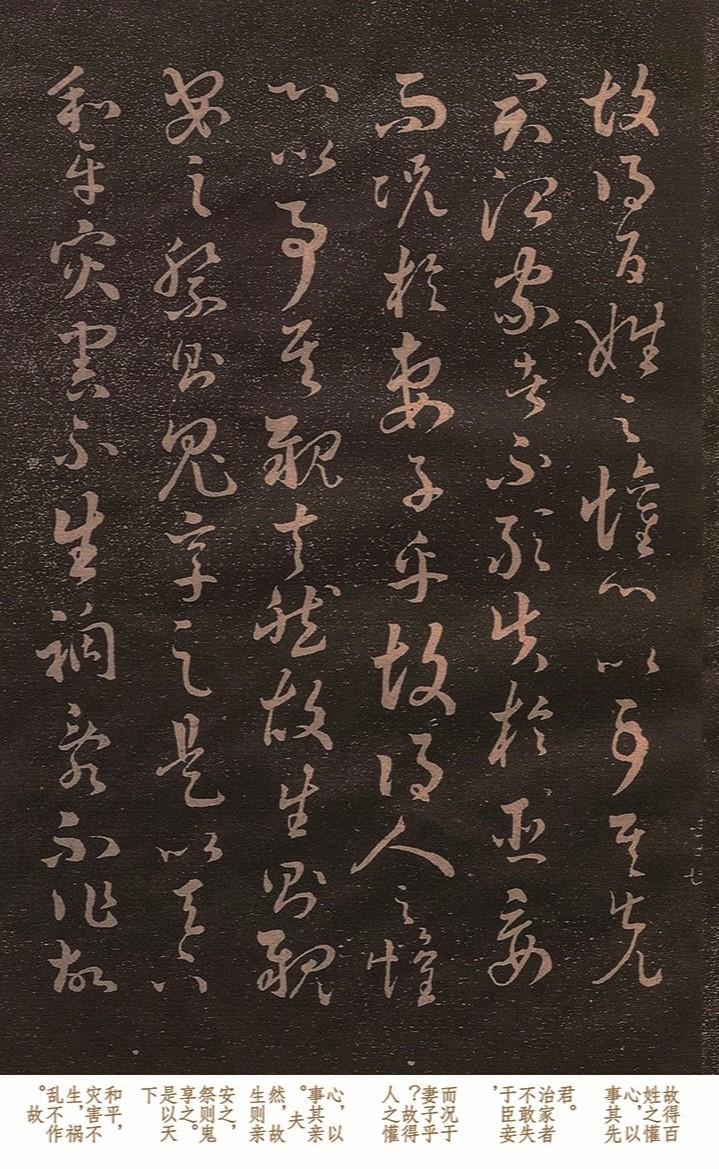 故得百姓之懽心以事其先
君治家者不敢失於臣妾
而況於妻子乎故得人之懽
心以事其親夫然故生則親
安之祭則鬼享之是以天下
和平災害不生禍亂不作故
故得百
姓之懽
心，以
事其先
君。
治家者
不敢失
于臣妾
，
而况于
妻子乎
？故得
人之懽
心，以
事其亲
。夫
然，故
生则亲
安之，
祭则鬼
享之。
是以天
下
和平，
灾害不
生，祸
乱不作
。故